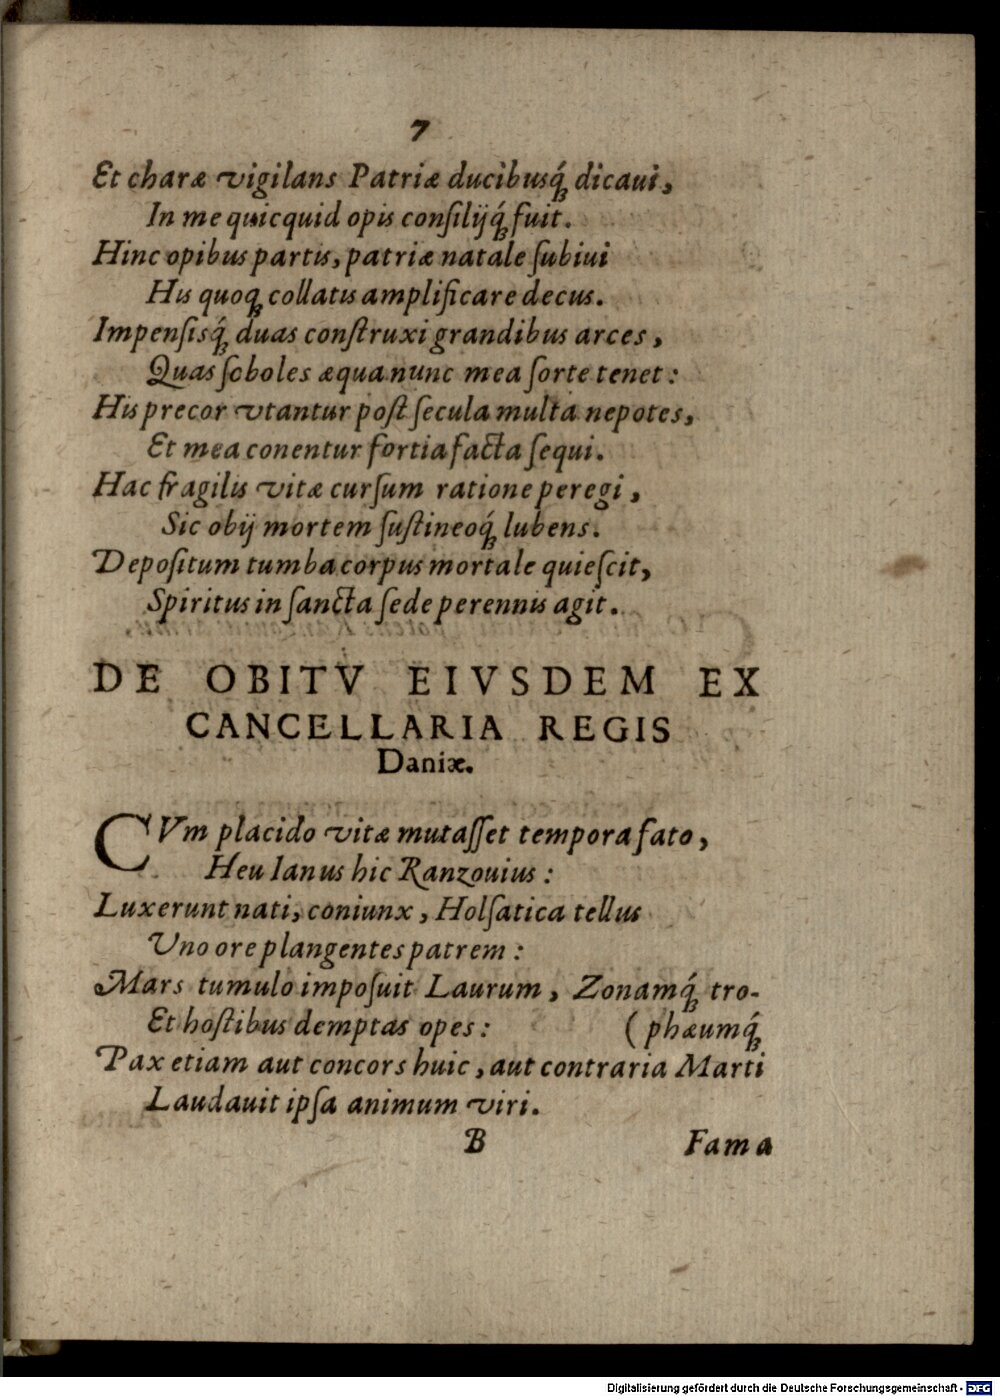 7
Et charæ vigilans Patriæ ducibusq́ꝫ dicaui,
In me quicquid opis conſilijq́ꝫ fuit.
Hinc opibus partis, patriæ natale ſubiui
His quoqꝫ collatis amplificare decus.
Impenſisq́ꝫ duas conſtruxi grandibus arces,
Quas ſoboles æqua nunc mea ſorte tenet:
His precor vtantur poſt ſecula multa nepotes,
Et mea conentur fortia facta ſequi.
Hac fragilis vitæ curſum ratione peregi,
Sic obij mortem ſuſtineoq́ꝫ lubens.
Depoſitum tumba corpus mortale quieſcit,
Spiritus in ſancta ſede perennis agit.
DE OBITV EIVSDEM EX
CANCELLARIA REGIS
Daniæ.
CVm placido vitæ mutaſſet tempora fato,
Heu Ianus hic Ranzouius:
Luxerunt nati, coniunx, Holſatica tellus
Vno ore plangentes patrem:
Mars tumulo impoſuit Laurum, Zonamq́ꝫ tro-
Et hoſtibus demptas opes: (phæumq́ꝫ
Pax etiam aut concors huic, aut contraria Marti
Laudauit ipſa animum viri.
B Fama
Digitalisierung gefördert durch die Deutsche Forschungsgemeinschaft - DFG